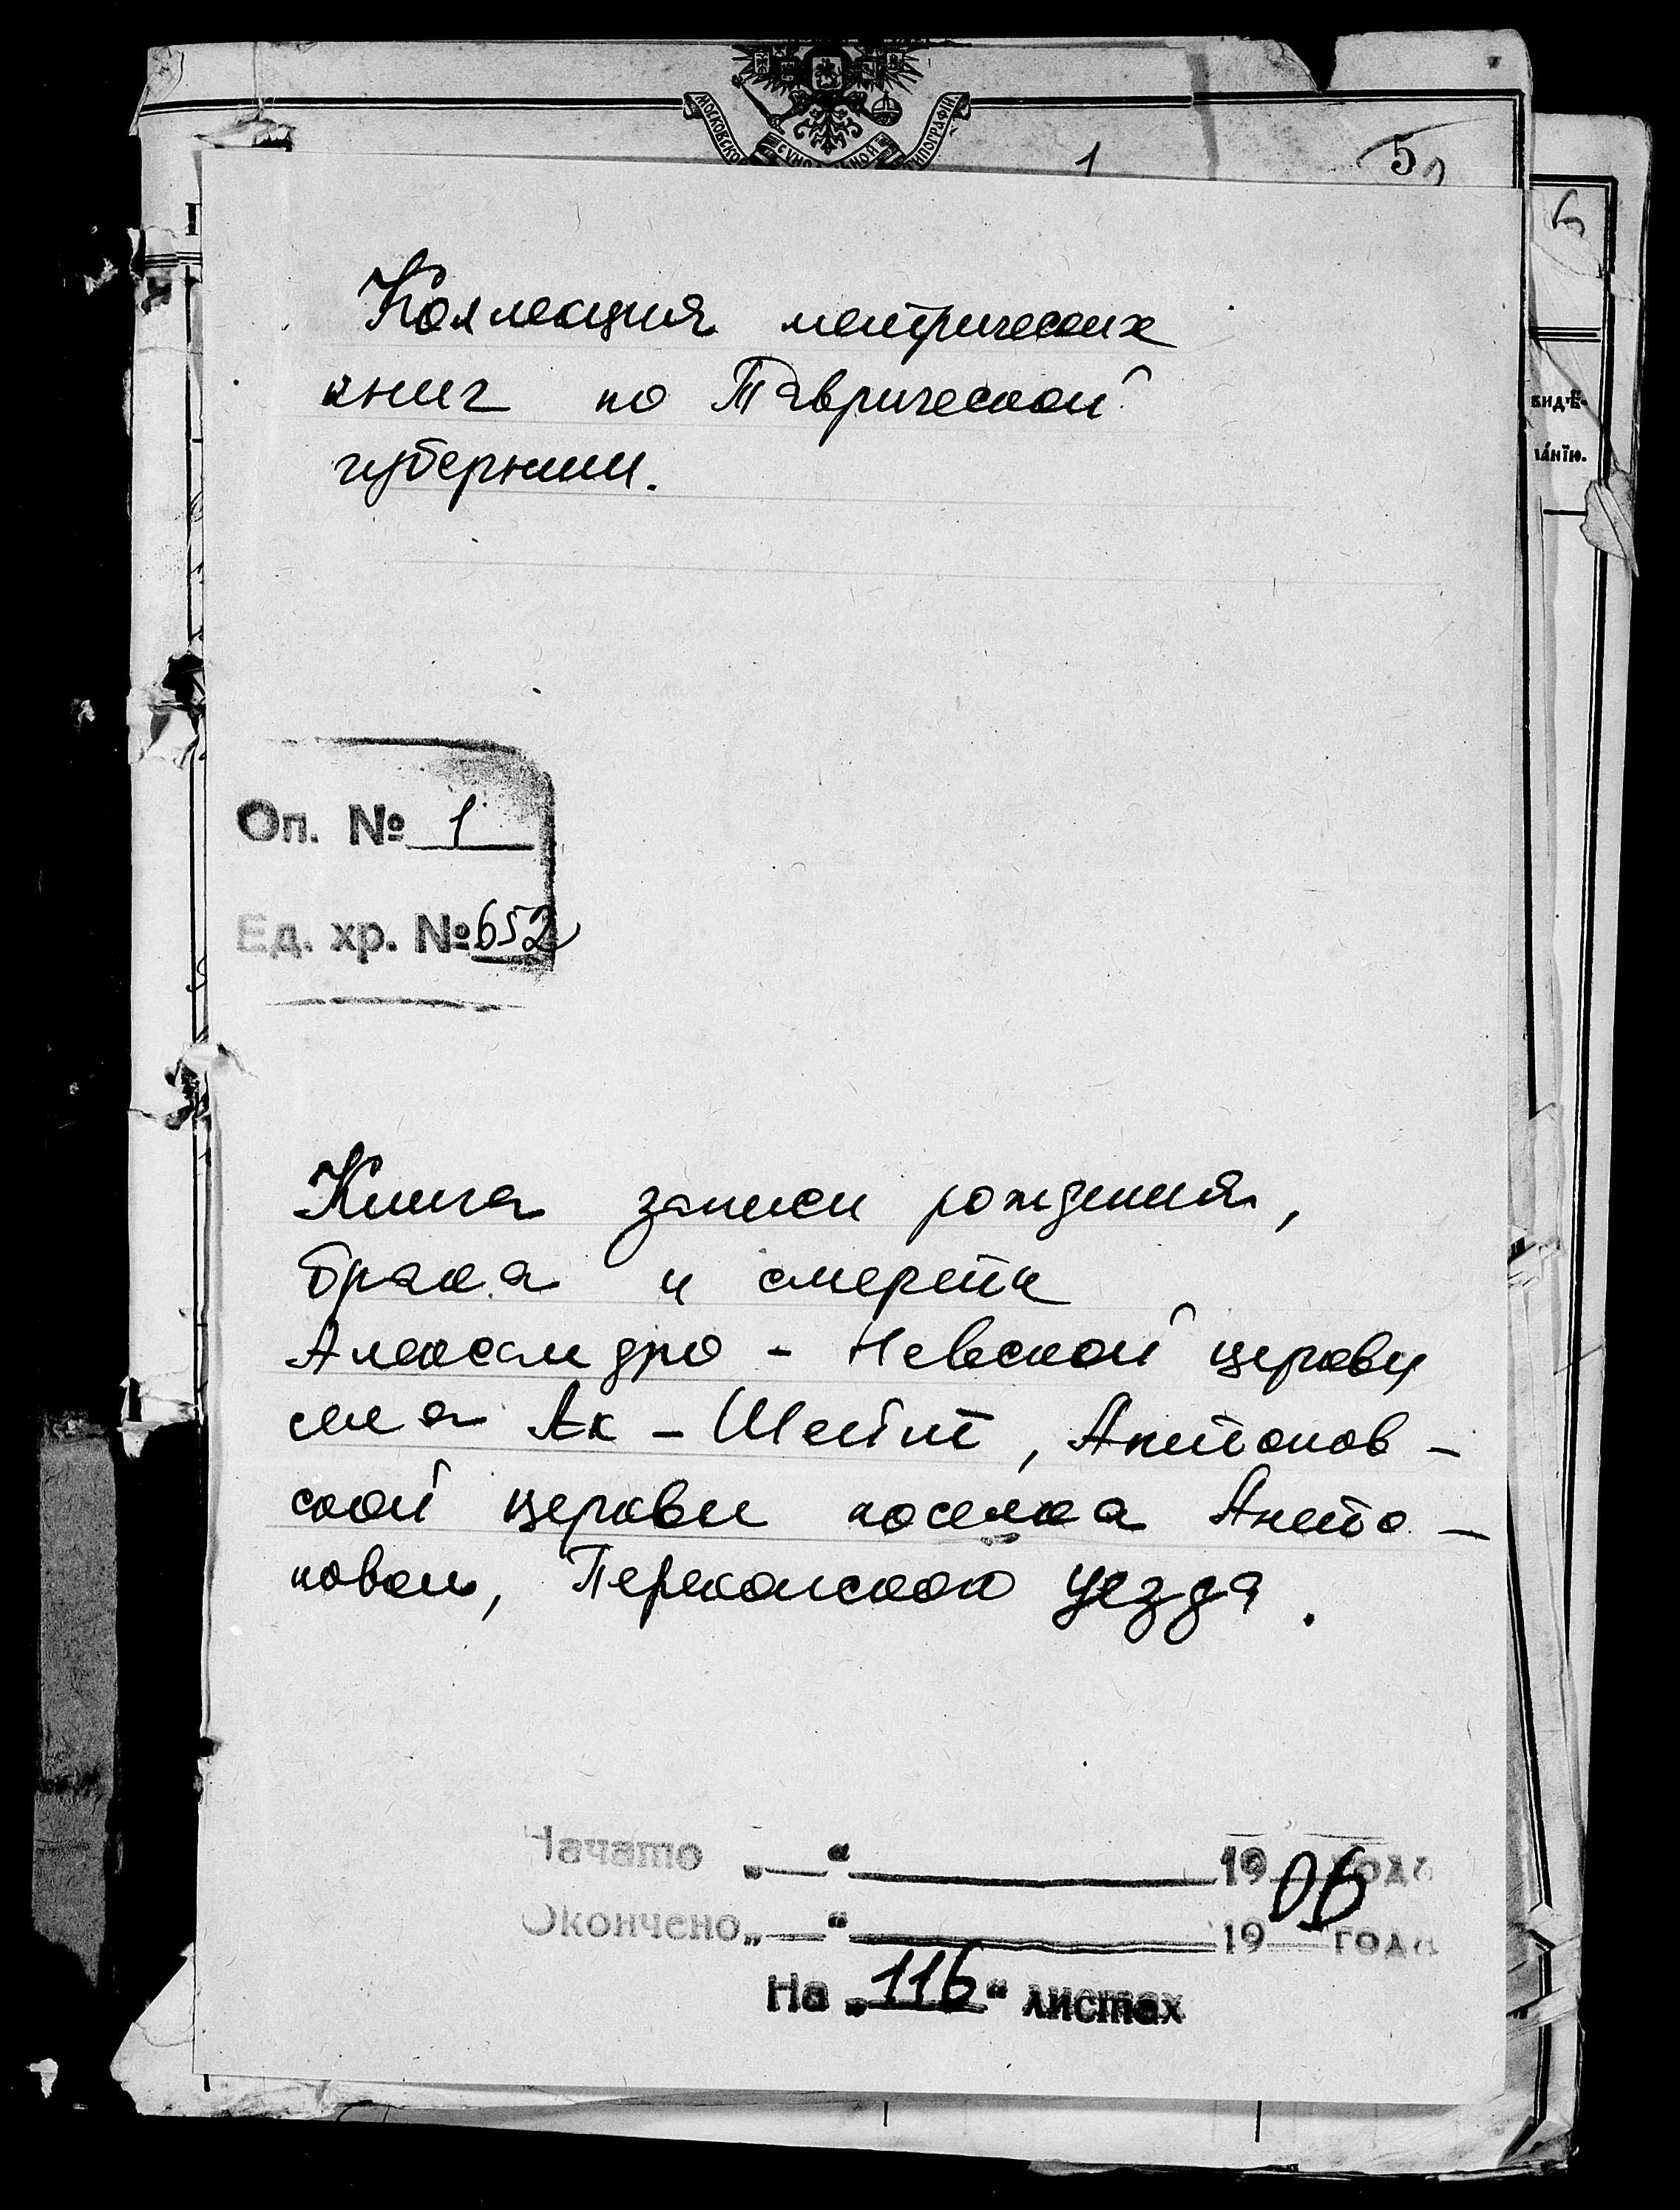 МОСКОВСКОЙ СѴНОДАЛЬНОЙ ТИПОГРАФІИ.
1
5
6
Коллекция метрических
книг по Таврической
губернии.
видѣ-
ванію.
Оп. № 1
Ед. хр. № 652
Книга записи рождения,
брака и смерти
Александро - Невской церкви
села Ак - Шейх, Антонов -
ской церкви поселка Анто -
новки, Перекопского уезда.
Начато „__“ 19 06 года
Окончено „__“ 19 года
На „116“ листах